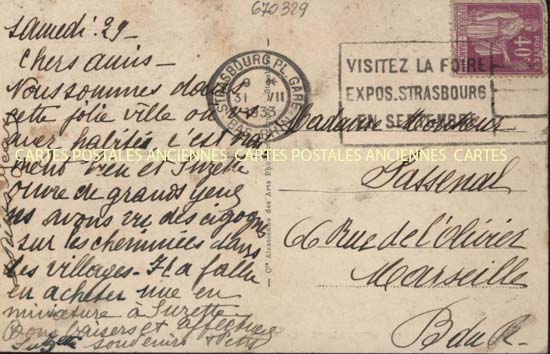 670329
Samedi 29-
Chers amis-
Nous sommes dans
cette jolie ville ou
avez habitée c'est
bien et Suzette
ouvre de grands yeux
ns avons vu des cigognes
sur les cheminées dans
les villages - Il a fallu
en acheter une en
miniature à Suzette
Bons baisers et affectueux
souvenirs
STRASBOURG PL. GARE
9
31 VII
1933
BAS-RHIN
VISITEZ LA FOIRE
EXPOS. STRASBOURG
EN SEPTEMBRE
POSTES
40
Madame Monsieur
Passenal
66 Rue de l'Olivier
Marseille
B du R-
Cie Alsacienne des Arts Ph
CARTES POSTALES ANCIENNES CARTES POSTALES ANCIENNES CARTES